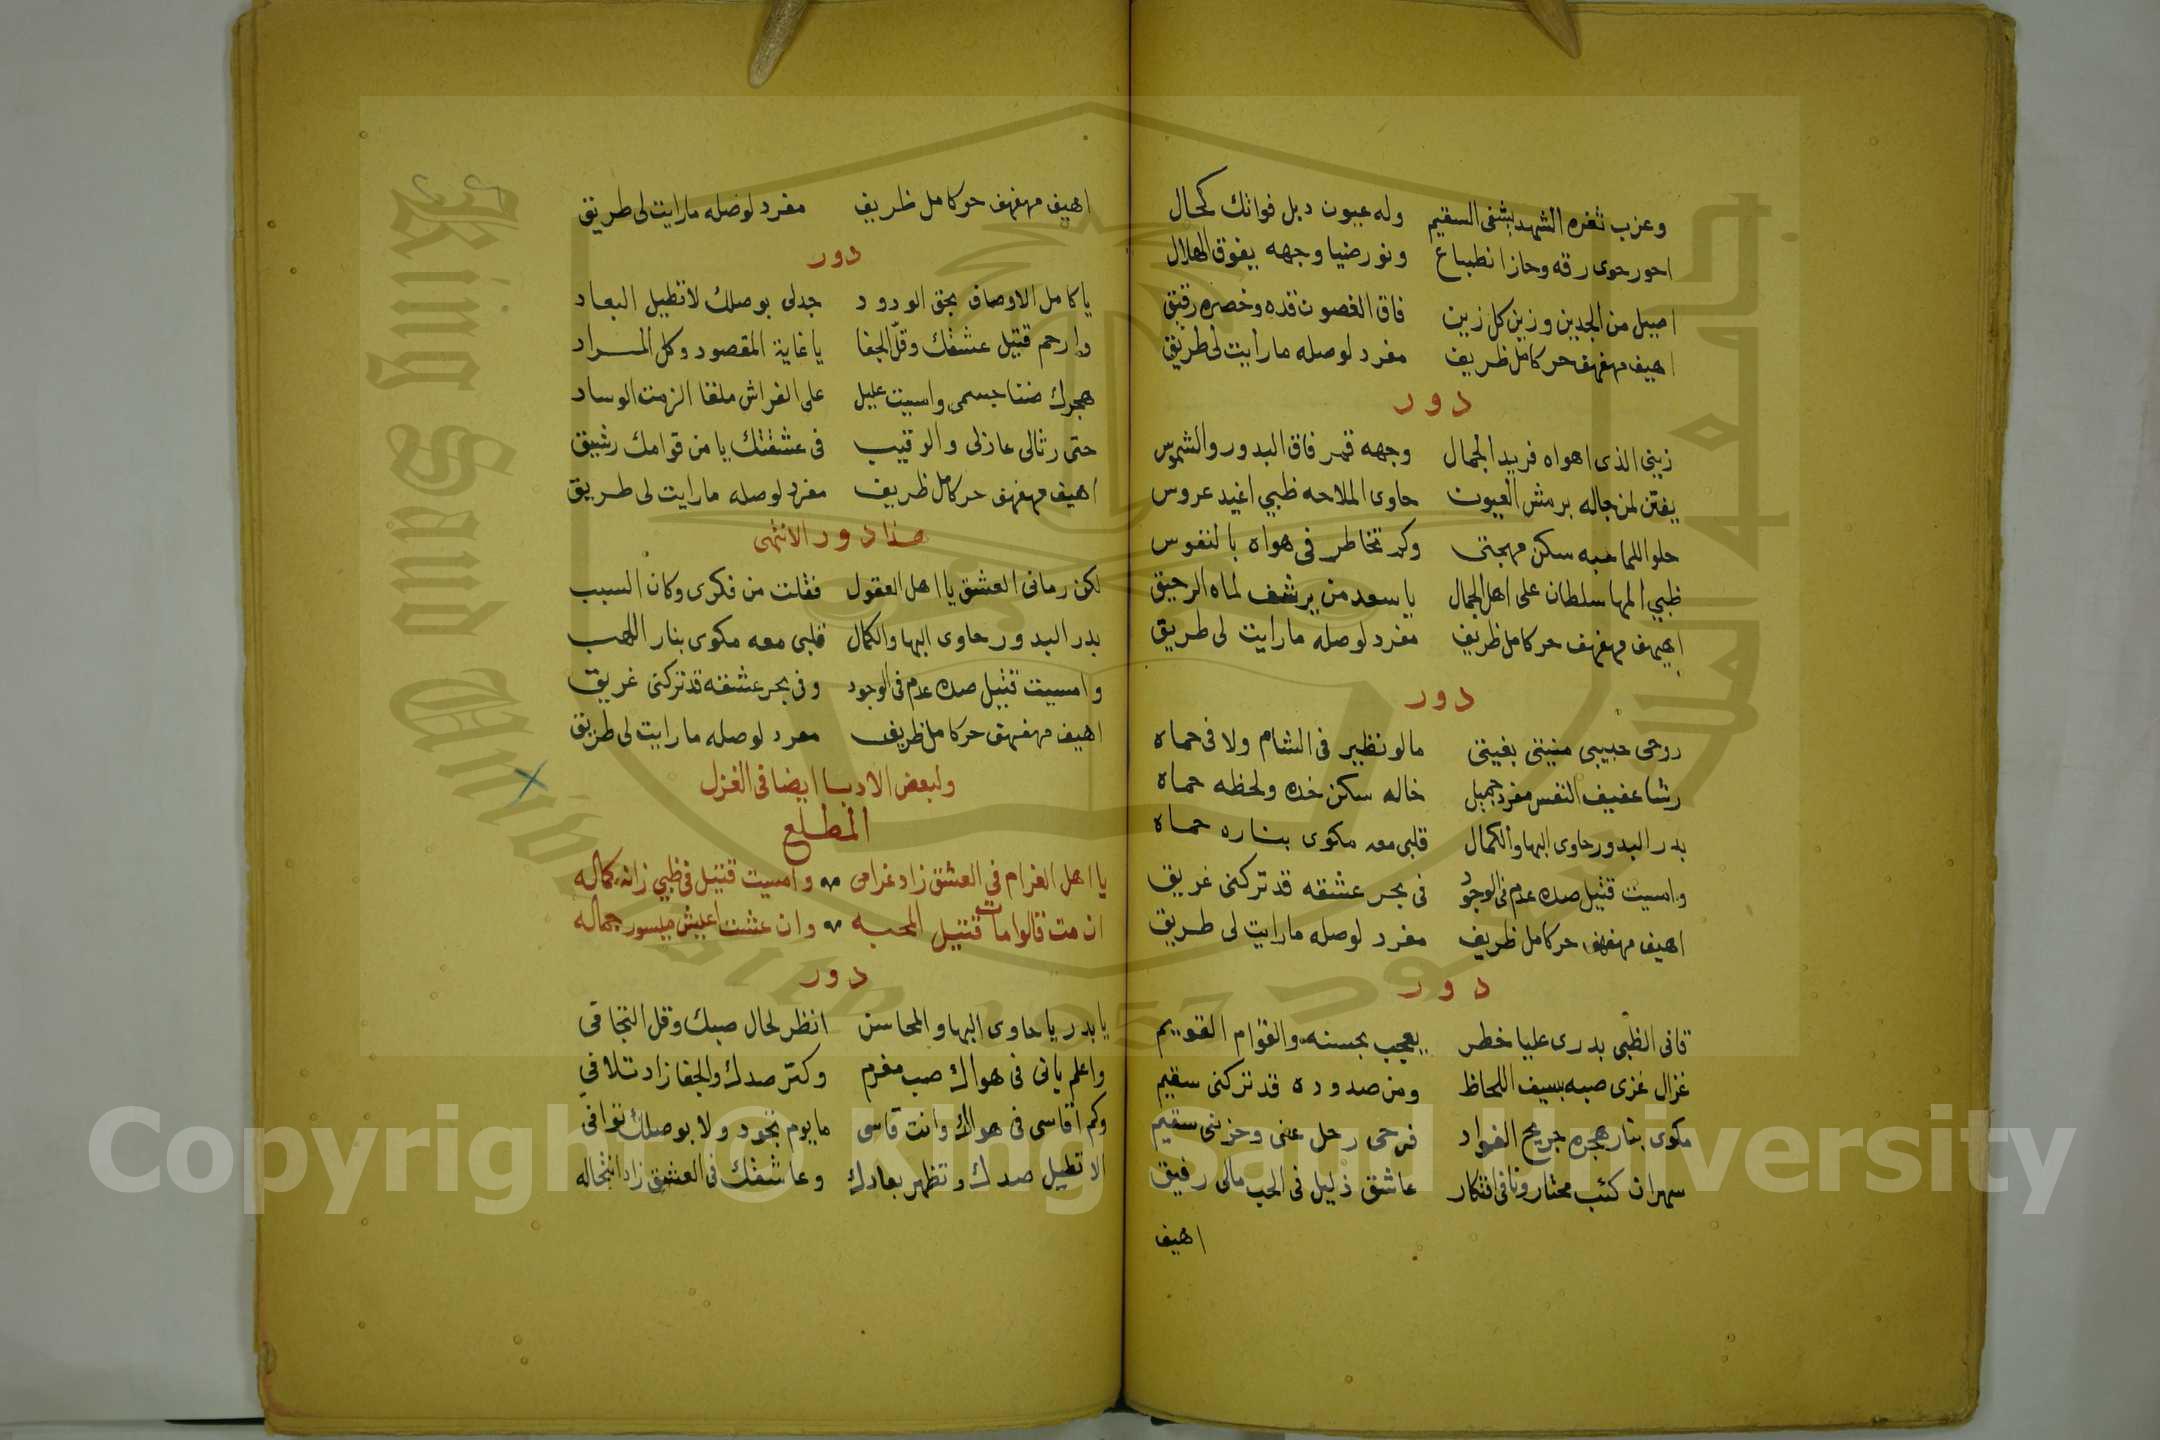 وعزب ثغره الشهد يشفى السقيم وله عيون دبل فواتك كحال
احور حوى رقه وحاز انطباع ونور ضيا وجهه يفوق الهلال
اصيل من الجدين وزين كل زين فاق الغصون قده وخصره رقيق
اهيف مهفهف حر كامل ظريف مفرد لوصله ما رأيت لى طريق
دور
زينى الذى اهواه فريد الجمال وجهه قمر فاق البدور والشموس
يفتن لمن جاله برمش العيون حاوى الملاحه ظبي اغيد عروس
حلو اللما حبه سكن مهجتى وكم تخاطر فى هواه بالنفوس
ظبي المها سلطان على اهل الجمال يا سعد من يرشف لماه الرحيق
اهيف مهفهف حر كامل ظريف مفرد لوصله مارايت لى طريق
دور
روحى حبيبى منيتى بغيتى مالو نظير فى الشام ولا فى حماه
رشا عفيف النفس مفرد جميل خاله سكن خده ولحظه حماه
بدر البدور حاوى البها والكمال قلبى معه مكوى بناره حماه
وامسيت قتيل صده عدم فى الوجود فى بحر عشقه قد تركنى غريق
اهيف مهفهف حر كامل ظريف مفرد لوصله مارايت لى طريق
دور
تانى الظبى بدرى عليا خطر يعجب بحسنه والقوام القويم
غزال غزى صبه بسيف اللحاظ ومن صدوده قد تركنى سقيم
مكوى بنار هجره جريح الفواد فرحى رحل عنى وحزنى سقيم
سهران كئب محتار وتا فى افتكار عاشق ذليل فى الحب مالى رفيق
اهيف
اهيف مهفهف حر كامل ظريف مفرد لوصله مارايت لى طريق
دور
يا كامل الاوصاف بحق الودود جدلى بوصلك لا تطيل البعاد
وارحم قتيل عشقك وقل الجفا يا غاية المقصود وكل المراد
هجرك ضنا جسمى واسيت عليل على الفراش ملقا الزمت الوساد
حتى رثالى عازلى والرقيب فى عشقتك يا من قوامك رشيق
اهيف مهفهف حر كامل ظريف مفرد لوصله مارايت لى طريق
هذا دور الانتهى
لكن رمانى العشق يا اهل العقول فقلت من فكرى وكان السبب
بدر البدور حاوى البها والكمال قلبى معه مكوى بنار اللهب
وامسيت قتيل صده عدم فى الوجود وفى بحر عشقه قد تركنى غريق
اهيف مهفهف حر كامل ظريف مفرد لوصله مارايت لى طريق
ولبعض الادبا ايضا فى الغزل
المطلع
يا اهل الغرام فى العشق زاد غرامى وامسيت قتيل فى ظبي زانه كماله
ان مت قالوا مات قتيل المحبه وان عشت اعيش ميسور جماله
دور
يا بدر يا حاوى البها والمحاسن انظر لحال صبك وقل التجافى
واعلم بانى فى هواك صب مغرم وكتر صدك والجفا زاد تلافي
وكم اقاسى فى هواك وانت قاسى ما يوم تجود ولا بوصلك توافى
الا تطيل صدك وتظهر بعادك وعاشقك فى العشق زاد انتحاله
Copyright © King Saud University
King Saud University
جامعة الملك سعود
1957